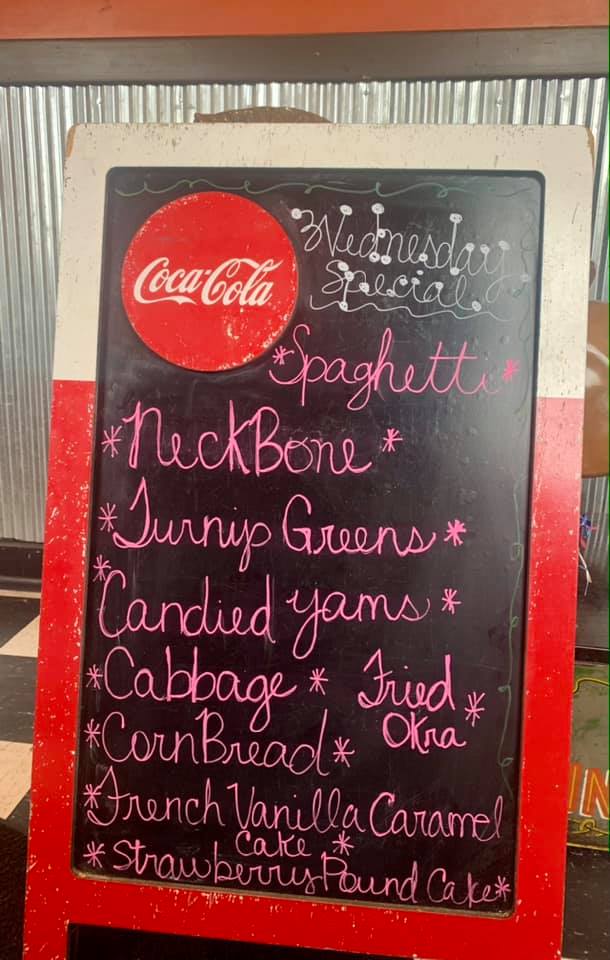 Coca-Cola
Wednesday
Special
*Spaghetti*
*NeckBone*
*Turnip Greens*
*Candied yams*
*Cabbage* Fried
Okra*
*CornBread*
*French Vanilla Caramel
Cake *
*Strawberry Pound Cake*
IN